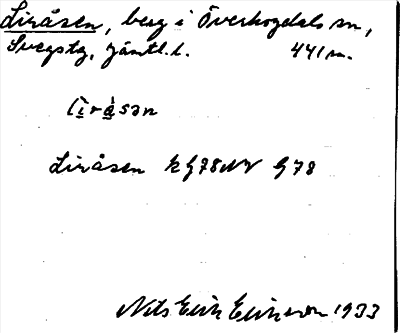 Liråsen, berg i Överhogdals sn,
Svegs tg, Jämtl. l. 441 m.
lìràsən
Liråsen k G78NV G78
Nils Erik Eriksson 1933